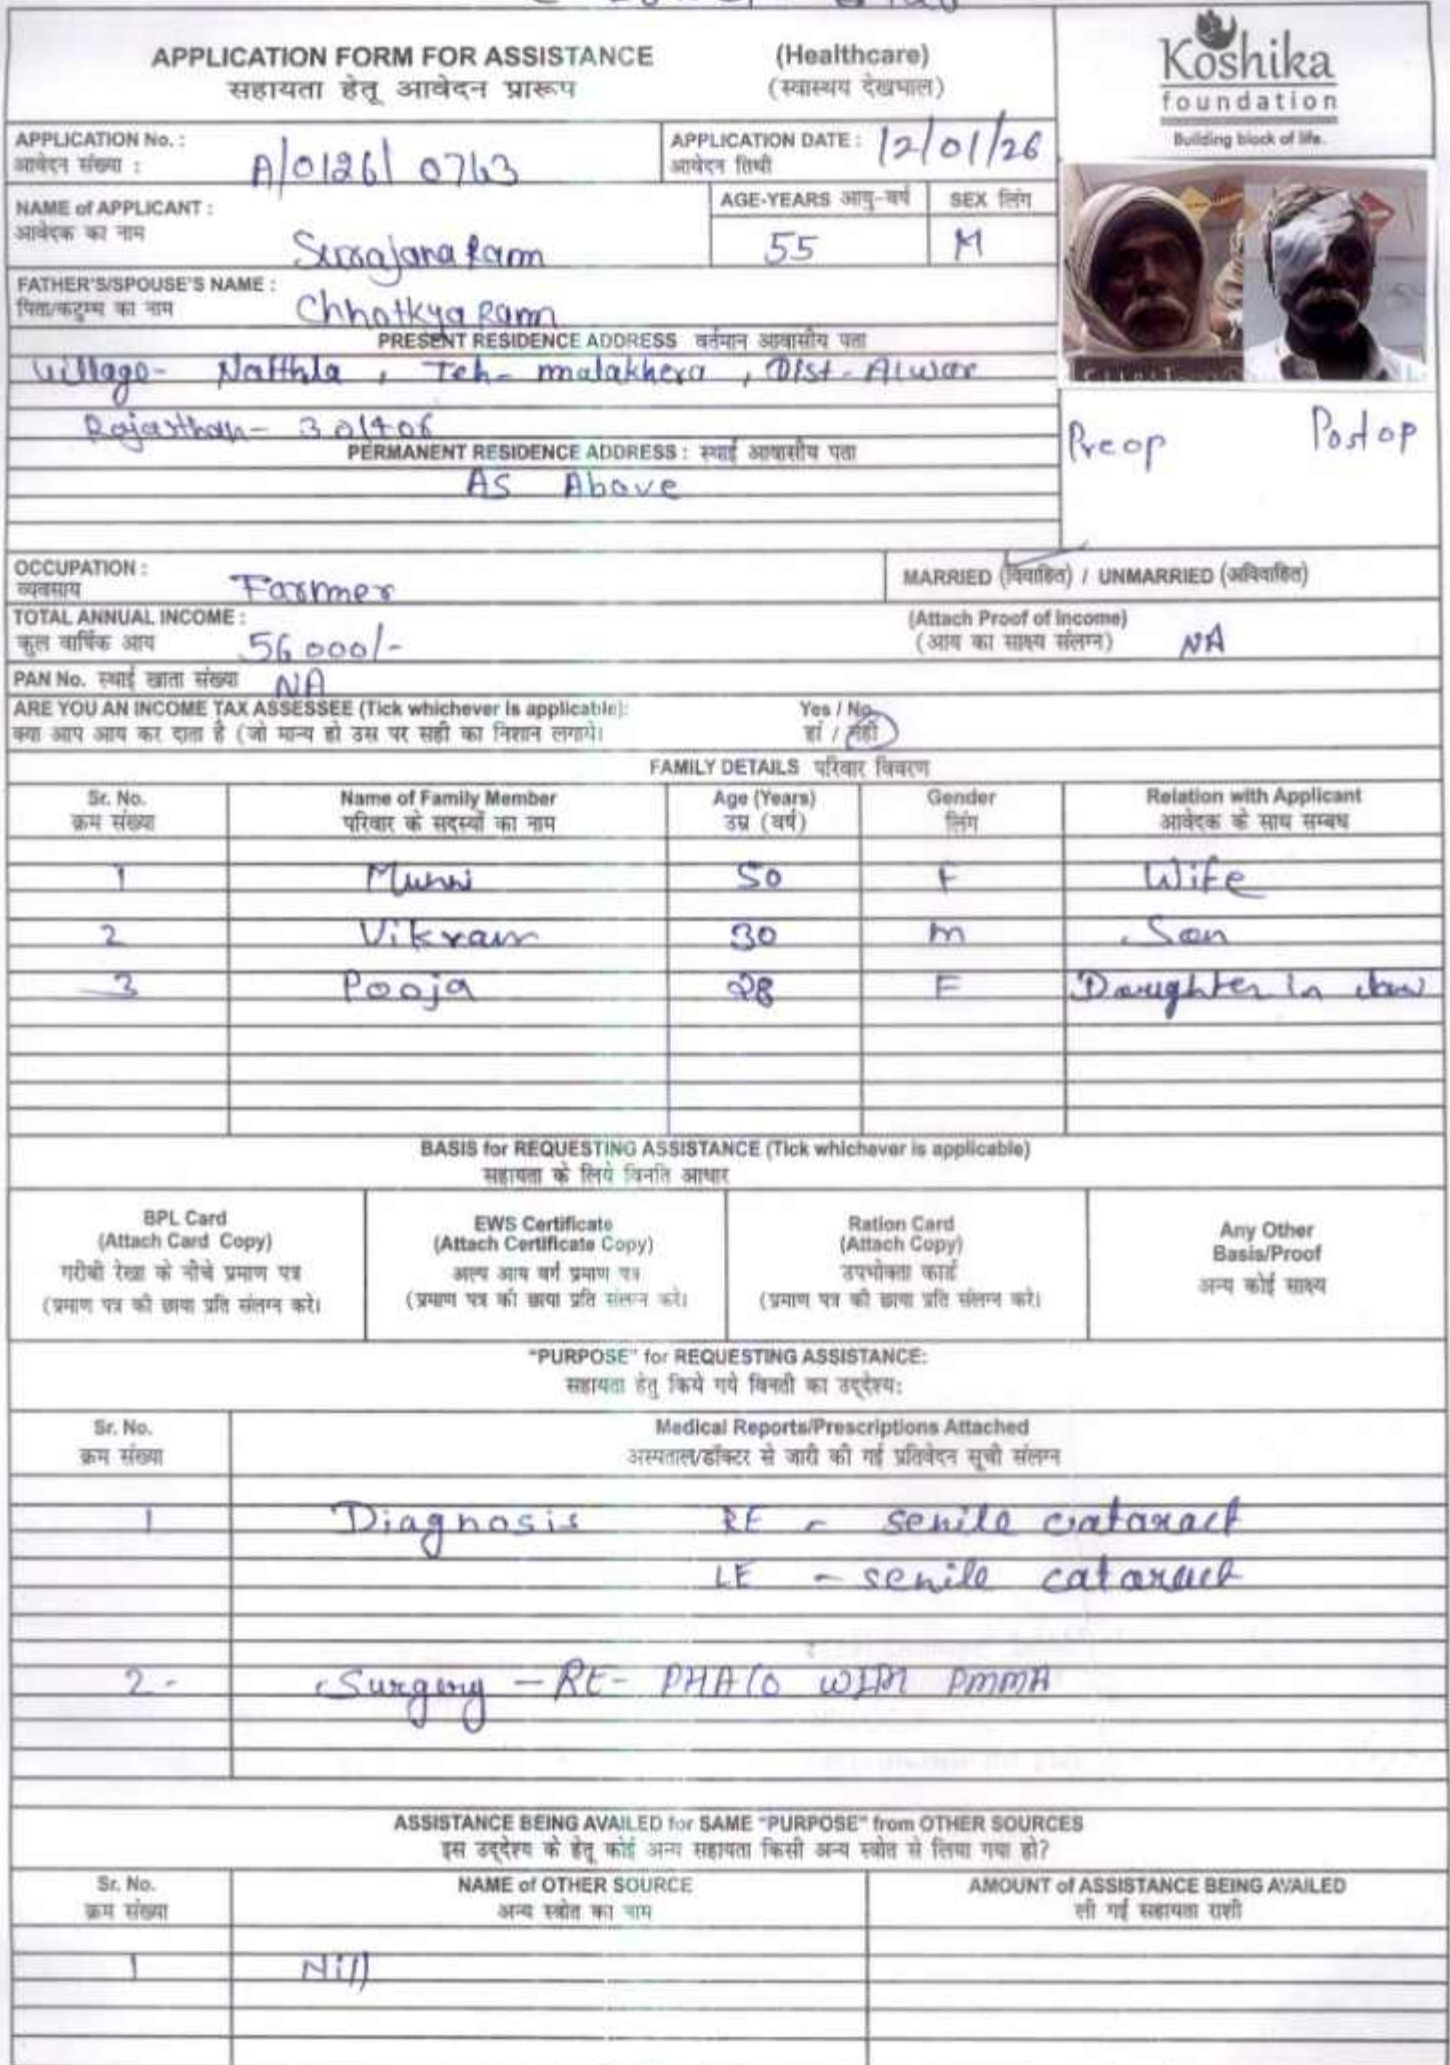 APPLICATION FORM FOR ASSISTANCE (Healthcare)
सहायता हेतू आवेदन प्रारूप (स्वास्थय देखभाल)
Koshika
foundation
Building block of life.
APPLICATION No. : A/0126/0763
आवेदन संख्या :
APPLICATION DATE : 12/01/26
आवेदन तिथी
NAME of APPLICANT :
आवेदक का नाम
Ram
AGE-YEARS आयु-वर्ष 55
SEX लिंग M
FATHER'S/SPOUSE'S NAME :
पिता/कटुम्ब का नाम Chhotkya Ram
PRESENT RESIDENCE ADDRESS वर्तमान आवासीय पता
Village- Natthla , Teh- malakhera , Dist- Alwar
Rajasthan- 301406
Preop Post op
PERMANENT RESIDENCE ADDRESS : स्थाई आवासीय पता
As Above
OCCUPATION :
व्यवसाय Farmer
MARRIED (विवाहित) / UNMARRIED (अविवाहित)
TOTAL ANNUAL INCOME :
कुल वार्षिक आय 56000/-
(Attach Proof of Income)
(आय का साक्ष्य संलग्न) NA
PAN No. स्थाई खाता संख्या NA
ARE YOU AN INCOME TAX ASSESSEE (Tick whichever is applicable): Yes / No
क्या आप आय कर दाता है (जो मान्य हो उस पर सही का निशान लगाये। हां / नहीं
FAMILY DETAILS परिवार विवरण
Sr. No. Name of Family Member Age (Years) Gender Relation with Applicant
क्रम संख्या परिवार के सदस्यों का नाम उम्र (वर्ष) लिंग आवेदक के साथ सम्बध
1 Munni 50 F Wife
2 Vikram 30 m Son
3 Pooja 28 F Daughter In law
BASIS for REQUESTING ASSISTANCE (Tick whichever is applicable)
सहायता के लिये विनति आधार
BPL Card
(Attach Card Copy)
गरीबी रेखा के नीचे प्रमाण पत्र
(प्रमाण पत्र की छाया प्रति संलग्न करे।
EWS Certificate
(Attach Certificate Copy)
अल्प आय वर्ग प्रमाण पत्र
(प्रमाण पत्र की छाया प्रति संलग्न करे।
Ration Card
(Attach Copy)
उपभोक्ता कार्ड
(प्रमाण पत्र की छाया प्रति संलग्न करे।
Any Other
Basis/Proof
अन्य कोई साक्ष्य
"PURPOSE" for REQUESTING ASSISTANCE:
सहायता हेतु किये गये विनती का उद्देश्य:
Sr. No. Medical Reports/Prescriptions Attached
क्रम संख्या अस्पताल/डॉक्टर से जारी की गई प्रतिवेदन सूची संलग्न
1 Diagnosis RE - senile cataract
LE - senile cataract
2 - Surgery - RE- PHACO WITH PMMA
ASSISTANCE BEING AVAILED for SAME "PURPOSE" from OTHER SOURCES
इस उद्देश्य के हेतू कोई अन्य सहायता किसी अन्य स्त्रोत से लिया गया हो?
Sr. No. NAME of OTHER SOURCE AMOUNT of ASSISTANCE BEING AVAILED
क्रम संख्या अन्य स्त्रोत का नाम ली गई सहायता राशी
1 Nill